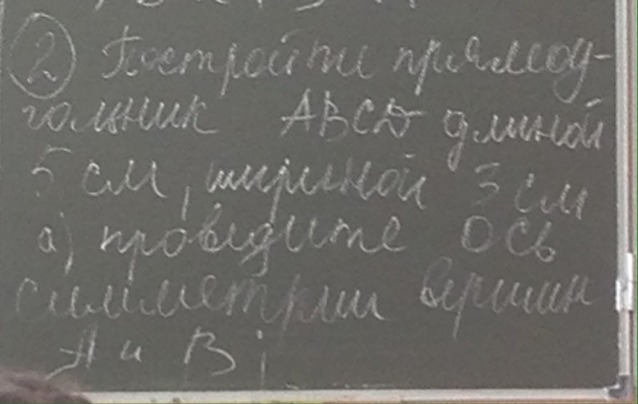 ② Постройте прямоу-
гольник ABCD длиной
5 см, шириной 3 см
а) проведите ось
симметрии вершин
A и B;